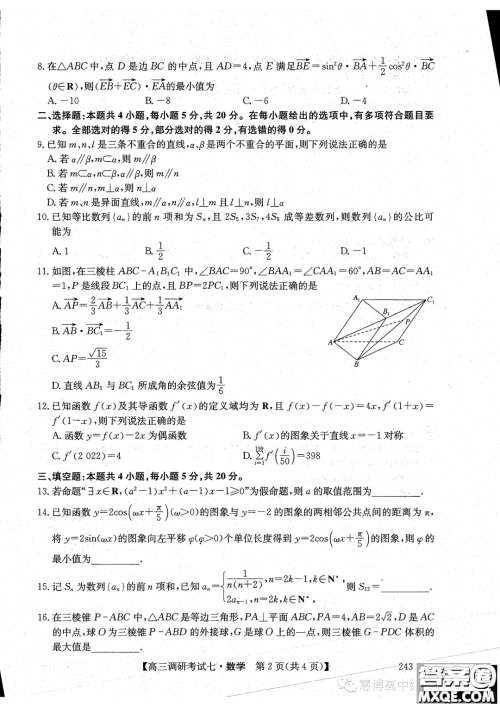 8. 在△ABC 中, 点 D 是边 BC 的中点, 且 AD=4, 点 E 满足 $\overrightarrow{BE}=\sin^2\theta\cdot\overrightarrow{BA}+\frac{1}{2}\cos^2\theta\cdot\overrightarrow{BC}$
(θ∈R), 则($\overrightarrow{EB}+\overrightarrow{EC}$)·$\overrightarrow{EA}$的最小值为
A. -10 B. -8 C. -6 D. -4
二、选择题: 本题共 4 小题, 每小题 5 分, 共 20 分。在每小题给出的选项中, 有多项符合题目要
求。全部选对的得 5 分, 部分选对的得 2 分, 有选错的得 0 分。
9. 已知 m、n、l 是三条不重合的直线, α、β 是两个不重合的平面, 则下列说法正确的是
A. 若 α∥β, m⊂α, 则 m∥β
B. 若 m⊂α, n⊂β, α∥β, 则 m∥n
C. 若 m∥n, m⊥α, 则 n⊥α
D. 若 m、n 是异面直线, m∥α, n∥α, l⊥m 且 l⊥n, 则 l⊥α
10. 已知等比数列{aₙ}的前 n 项和为 Sₙ, 且 2S₅, 3S₇, 4S₉ 成等差数列, 则数列{aₙ}的公比可
能为
A. 1 B. $\frac{1}{2}$ C. $-\frac{1}{2}$ D. -1
11. 如图, 在三棱柱 ABC-A₁B₁C₁ 中, ∠BAC=90°, ∠BAA₁=∠CAA₁=60°, AB=AC=AA₁
=1, P 是线段 BC₁ 上的点, 且 BP=2PC₁, 则下列说法正确的是
A. $\overrightarrow{AP}=\frac{2}{3}\overrightarrow{AB}+\frac{1}{3}\overrightarrow{AC}+\frac{1}{3}\overrightarrow{AA_1}$
B. $\overrightarrow{AB}\cdot\overrightarrow{BC_1}=-\frac{1}{2}$
C. AP=$\frac{\sqrt{15}}{3}$
D. 直线 AB₁ 与 BC₁ 所成角的余弦值为$\frac{1}{6}$
A₁ C₁ B₁ P A C B
12. 已知函数 f(x)及其导函数 f′(x)的定义域均为 R, 且 f(x)-f(-x)=4x, f′(1+x)=
f′(1-x), 则下列说法正确的是
A. 函数 y=f(x)-2x 为偶函数 B. f′(x)的图象关于直线 x=-1 对称
C. f′(2 022)=4 D. $\sum_{i=1}^{199}f'(\frac{i}{50})=398$
三、填空题: 本题共 4 小题, 每小题 5 分, 共 20 分。
13. 若命题“∃x∈R, (a²-1)x²+(a-1)x-1≥0”为假命题, 则 a 的取值范围为________.
14. 已知函数 y=2cos(ωx+$\frac{\pi}{5}$)(ω>0)的图象与 y=-2 的图象的两相邻公共点间的距离为 π,
将 y=2sin(ωx)的图象向左平移 φ(φ>0)个单位长度得到 y=2cos(ωx+$\frac{\pi}{5}$)的图象, 则 φ 的
最小值为________.
15. 记 Sₙ 为数列{aₙ}的前 n 项和, 已知 aₙ=$\begin{cases}\frac{1}{n(n+2)}, n=2k-1, k\in N^*,\\2a_{n-1}, n=2k, k\in N^*,\end{cases}$则 S₁₂=________.
16. 在三棱锥 P-ABC 中, △ABC 是等边三角形, PA⊥平面 ABC, PA=4, AB=2√2, D 是 AC
的中点, 球 O 为三棱锥 P-ABD 的外接球, G 是球 O 上的一点, 则三棱锥 G-PDC 体积的
最大值是________.
【高三调研考试七·数学 第 2 页(共 4 页)】 243